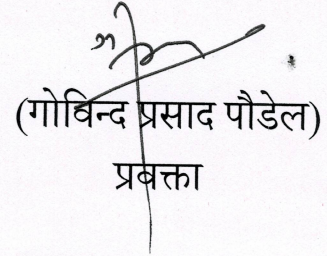 (गोविन्द प्रसाद पौडेल)
प्रवक्ता